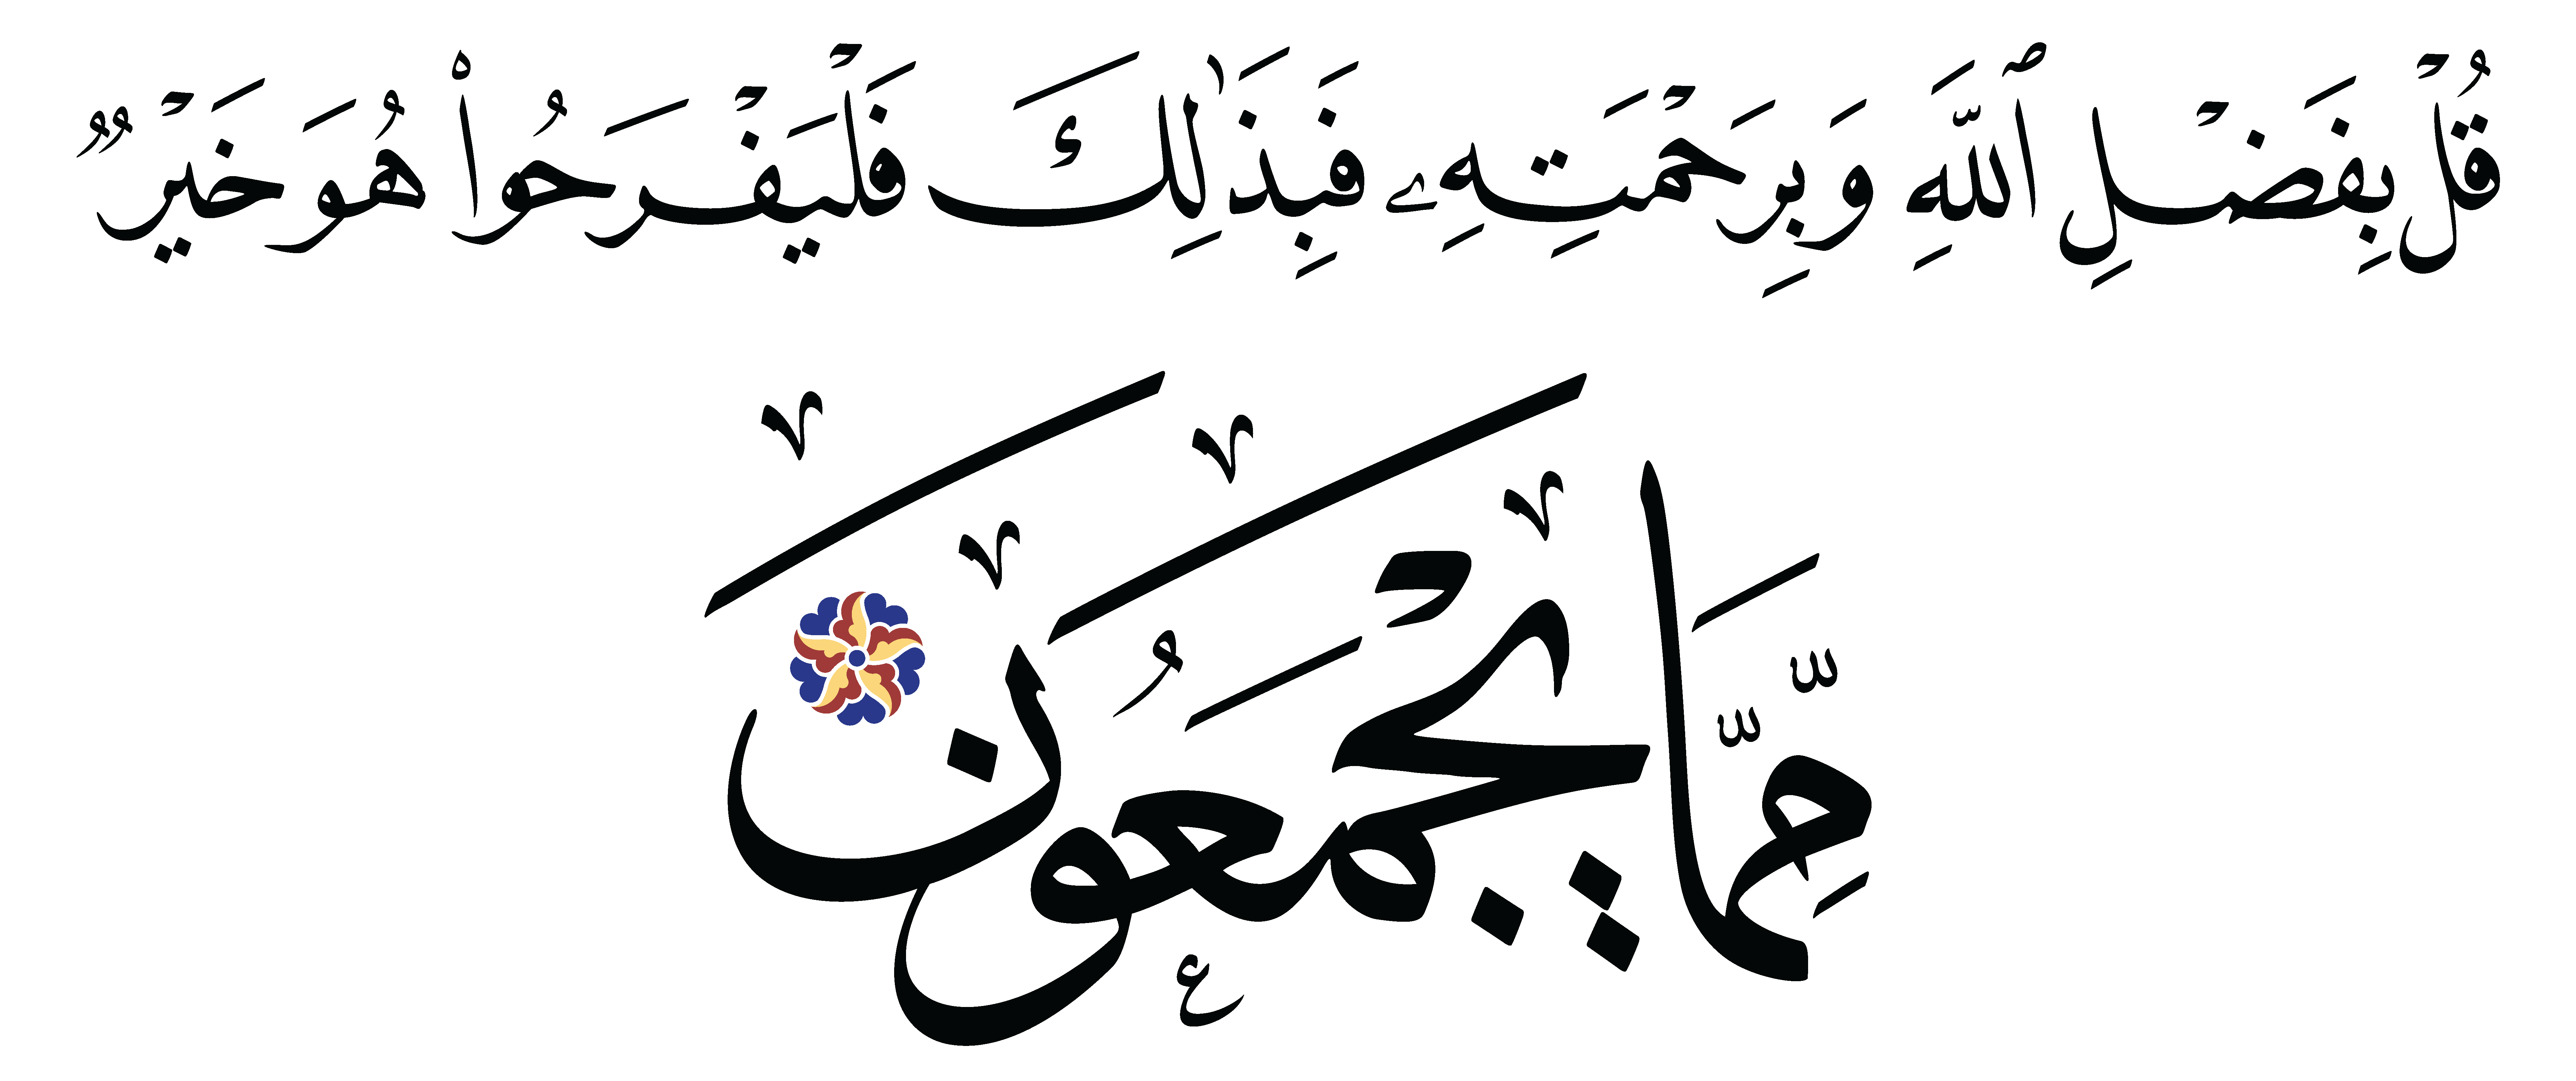 قُلْ بِفَضْلِ ٱللَّهِ وَبِرَحْمَتِهِۦ فَبِذَٰلِكَ فَلْيَفْرَحُوا۟ هُوَ خَيْرٌ
مِّمَّا يَجْمَعُونَ